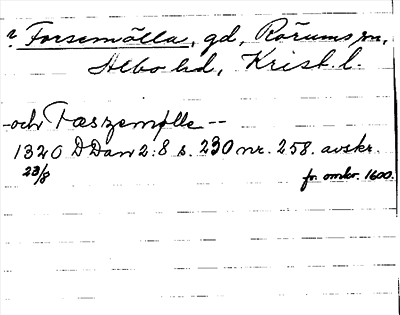 ? Forsemölla, gd, Rörums sn,
Albo hd, Krist. l.
-och Taszemølle--
1320 DDan 2:8 s. 230 nr. 258. avskr.
23/8 fr. omkr. 1600.